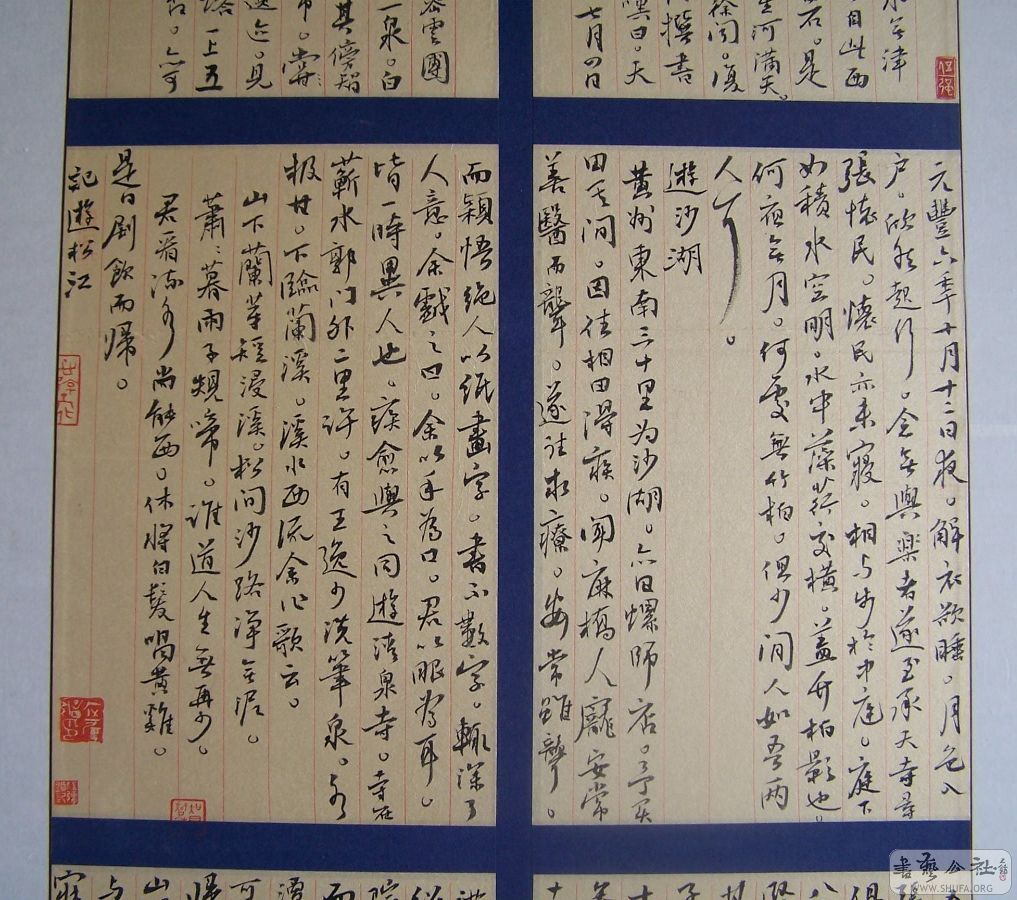 水無津
自此西
石。是
星河滿天。
徐聞。復
撰書
嘆曰。天
七月四日
一泉。白
其傍智
元豐六年十月十二日夜。解衣欲睡。月色入
戶。欣然起行。念無與樂者遂至承天寺尋
張懷民。懷民亦未寢。相與步於中庭。庭下
如積水空明。水中藻荇交橫。蓋竹柏影也。
何夜無月。何處無竹柏。但少閒人如吾兩
人耳。
遊沙湖
黃州東南三十里為沙湖。亦曰螺師店。予買
田其間。因往相田得疾。聞麻橋人龐安常
善醫而聾。遂往求療。安常雖聾。
而穎悟絕人以紙畫字。書不數字。輒深了
人意。余戲之曰。余以手為口。君以眼為耳。
皆一時異人也。疾愈與之同遊清泉寺。寺在
蘄水郭門外二里許。有王逸少洗筆泉。水
極甘。下臨蘭溪。溪水西流余作歌云。
山下蘭芽短浸溪。松間沙路淨無泥。
蕭蕭暮雨子規啼。誰道人生無再少。
君看流水尚能西。休將白髮唱黃雞。
是日劇飲而歸。
記遊松江
書藝公社
WWW.SHUFA.ORG